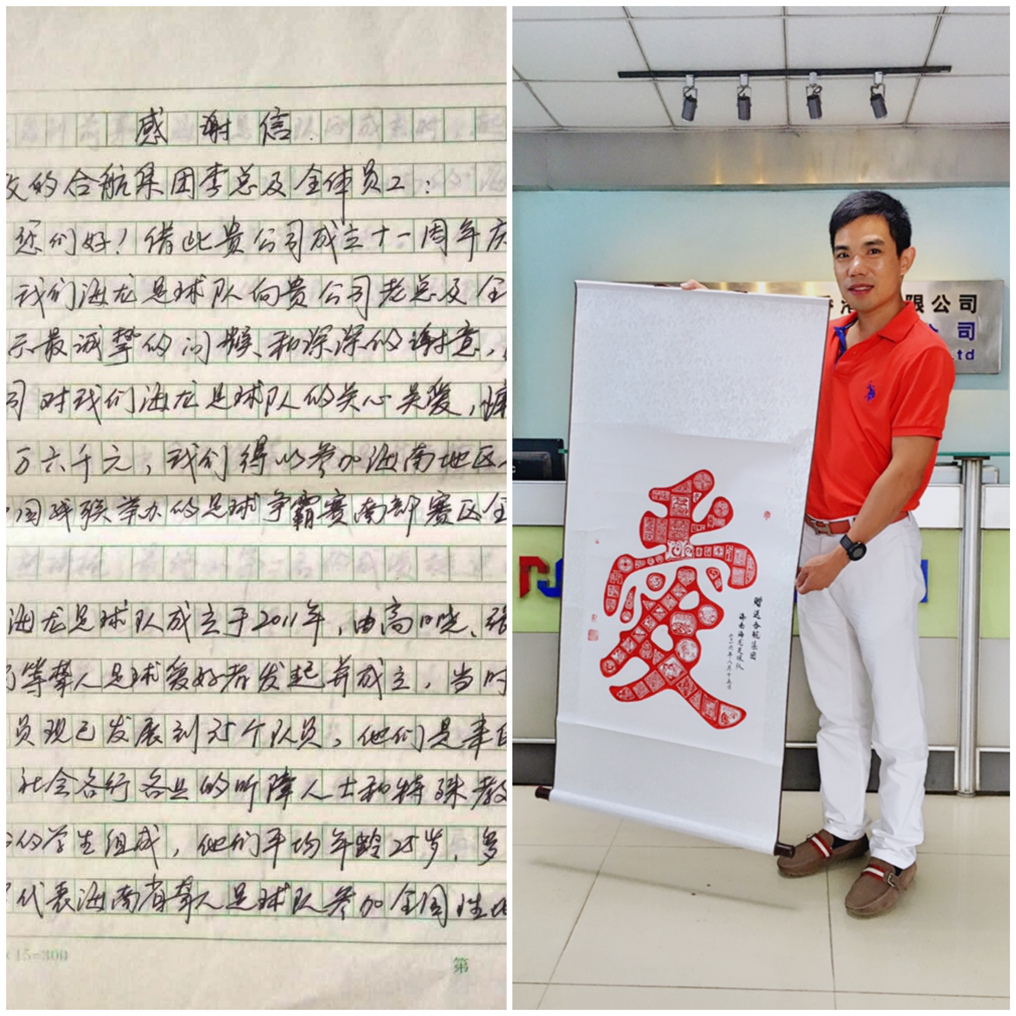 感谢信
的合航集团李总及全体员工：
您们好！借此贵公司成立十一周年庆
我们海龙足球队向贵公司老总及全
示最诚挚的问候、和深深的谢意，
司对我们海龙足球队的关心关爱，
万六千元，我们得以参加海南地区
国残联举办的足球争霸赛南部赛区全
海龙足球队成立于2011年，由高晓、张
等聋人足球爱好者发起并成立，当时
员现已发展到25个队员，他们是来自
社会各行各业的听障人士和特殊教
的学生组成，他们平均年龄25岁，多
代表海南省聋人足球队参加全国性
15=300
第
限公司
公司
Ltd
愛
赠送合航集团
海南海龙足球队
二〇一六年八月十五日